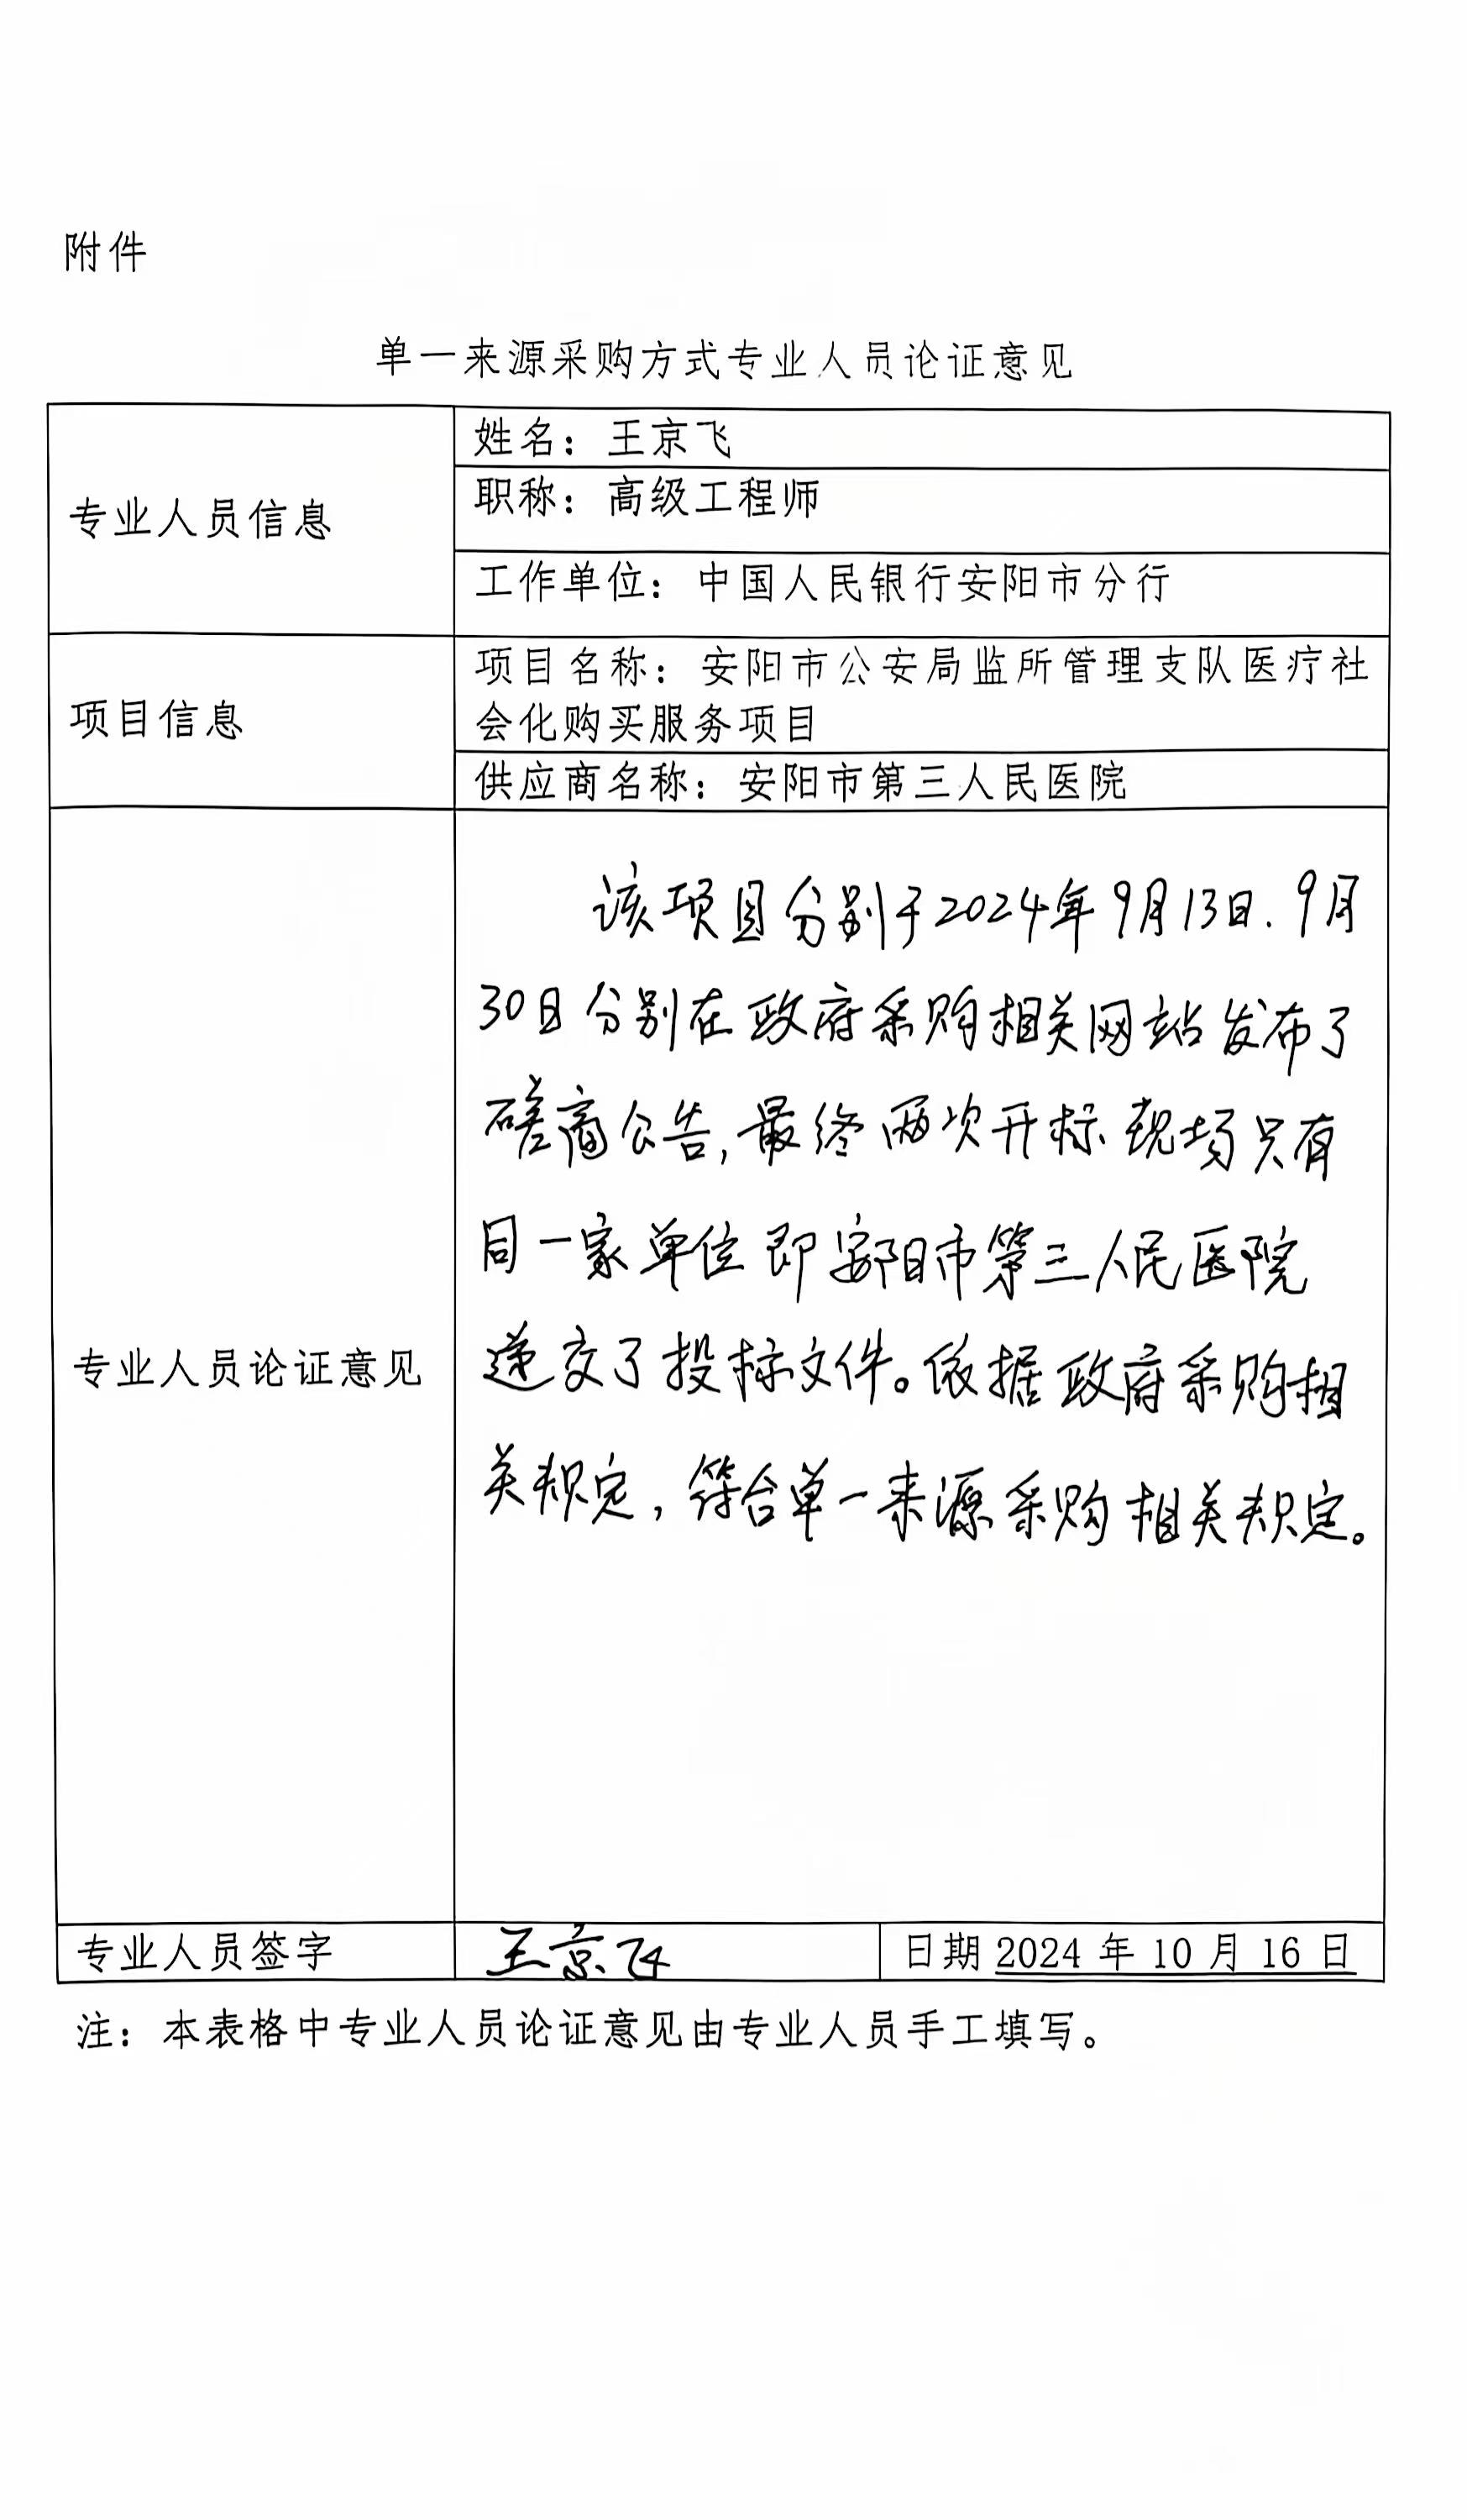 附件
单一来源采购方式专业人员论证意见
专业人员信息
姓名：王京飞
职称：高级工程师
工作单位：中国人民银行安阳市分行
项目信息
项目名称：安阳市公安局监所管理支队医疗社
会化购买服务项目
供应商名称：安阳市第三人民医院
专业人员论证意见
该项目分别于2024年9月13日.9月
30日分别在政府采购相关网站发布了
磋商公告,最终两次开标现场只有
同一家单位即安阳市第三人民医院
递交了投标文件。依据政府采购相
关规定,符合单一来源采购相关规定。
专业人员签字
王京飞
日期2024 年 10 月 16 日
注：本表格中专业人员论证意见由专业人员手工填写。